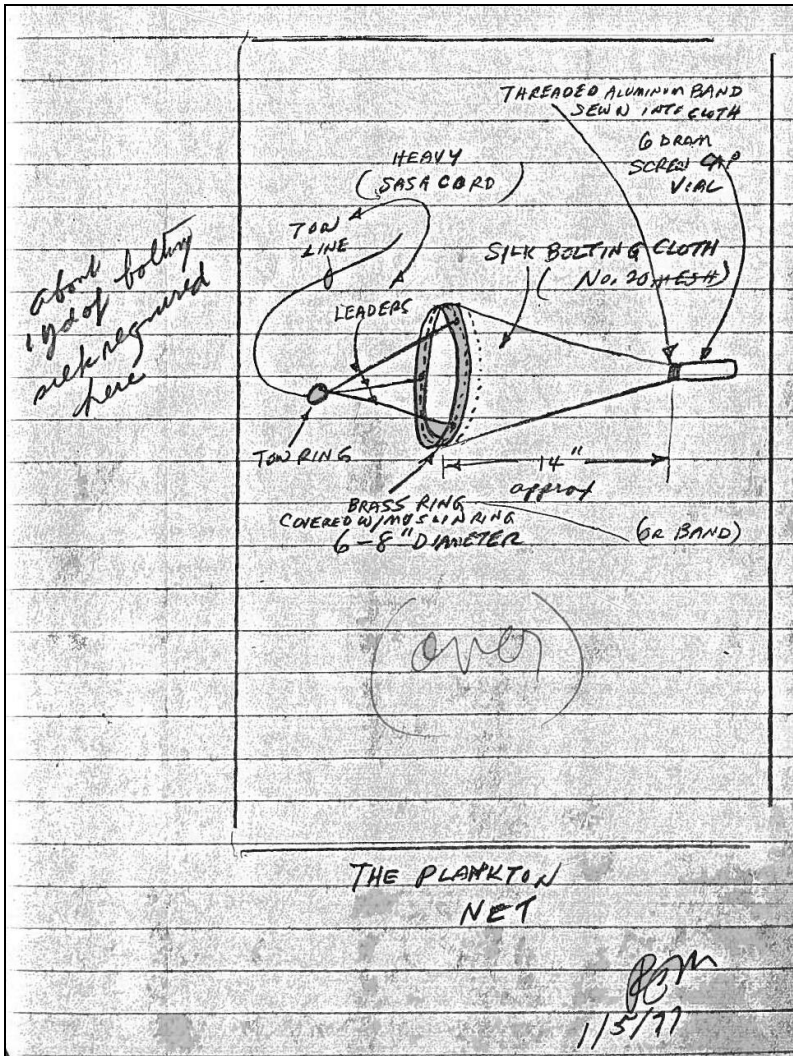 THREADED ALUMINUM BAND
SEWN INTO CLOTH
6 DRAM
SCREW CAP
VIAL
HEAVY
(SASA CORD)
TOW
LINE
SILK BOLTING CLOTH
(No. 20 MESH)
LEADERS
about
1 yd of bolting
silk required
here
TOW RING
14"
approx
BRASS RING
COVERED W/MUSLIN RING
6-8" DIAMETER
(OR BAND)
(over)
THE PLANKTON
NET
1/5/77